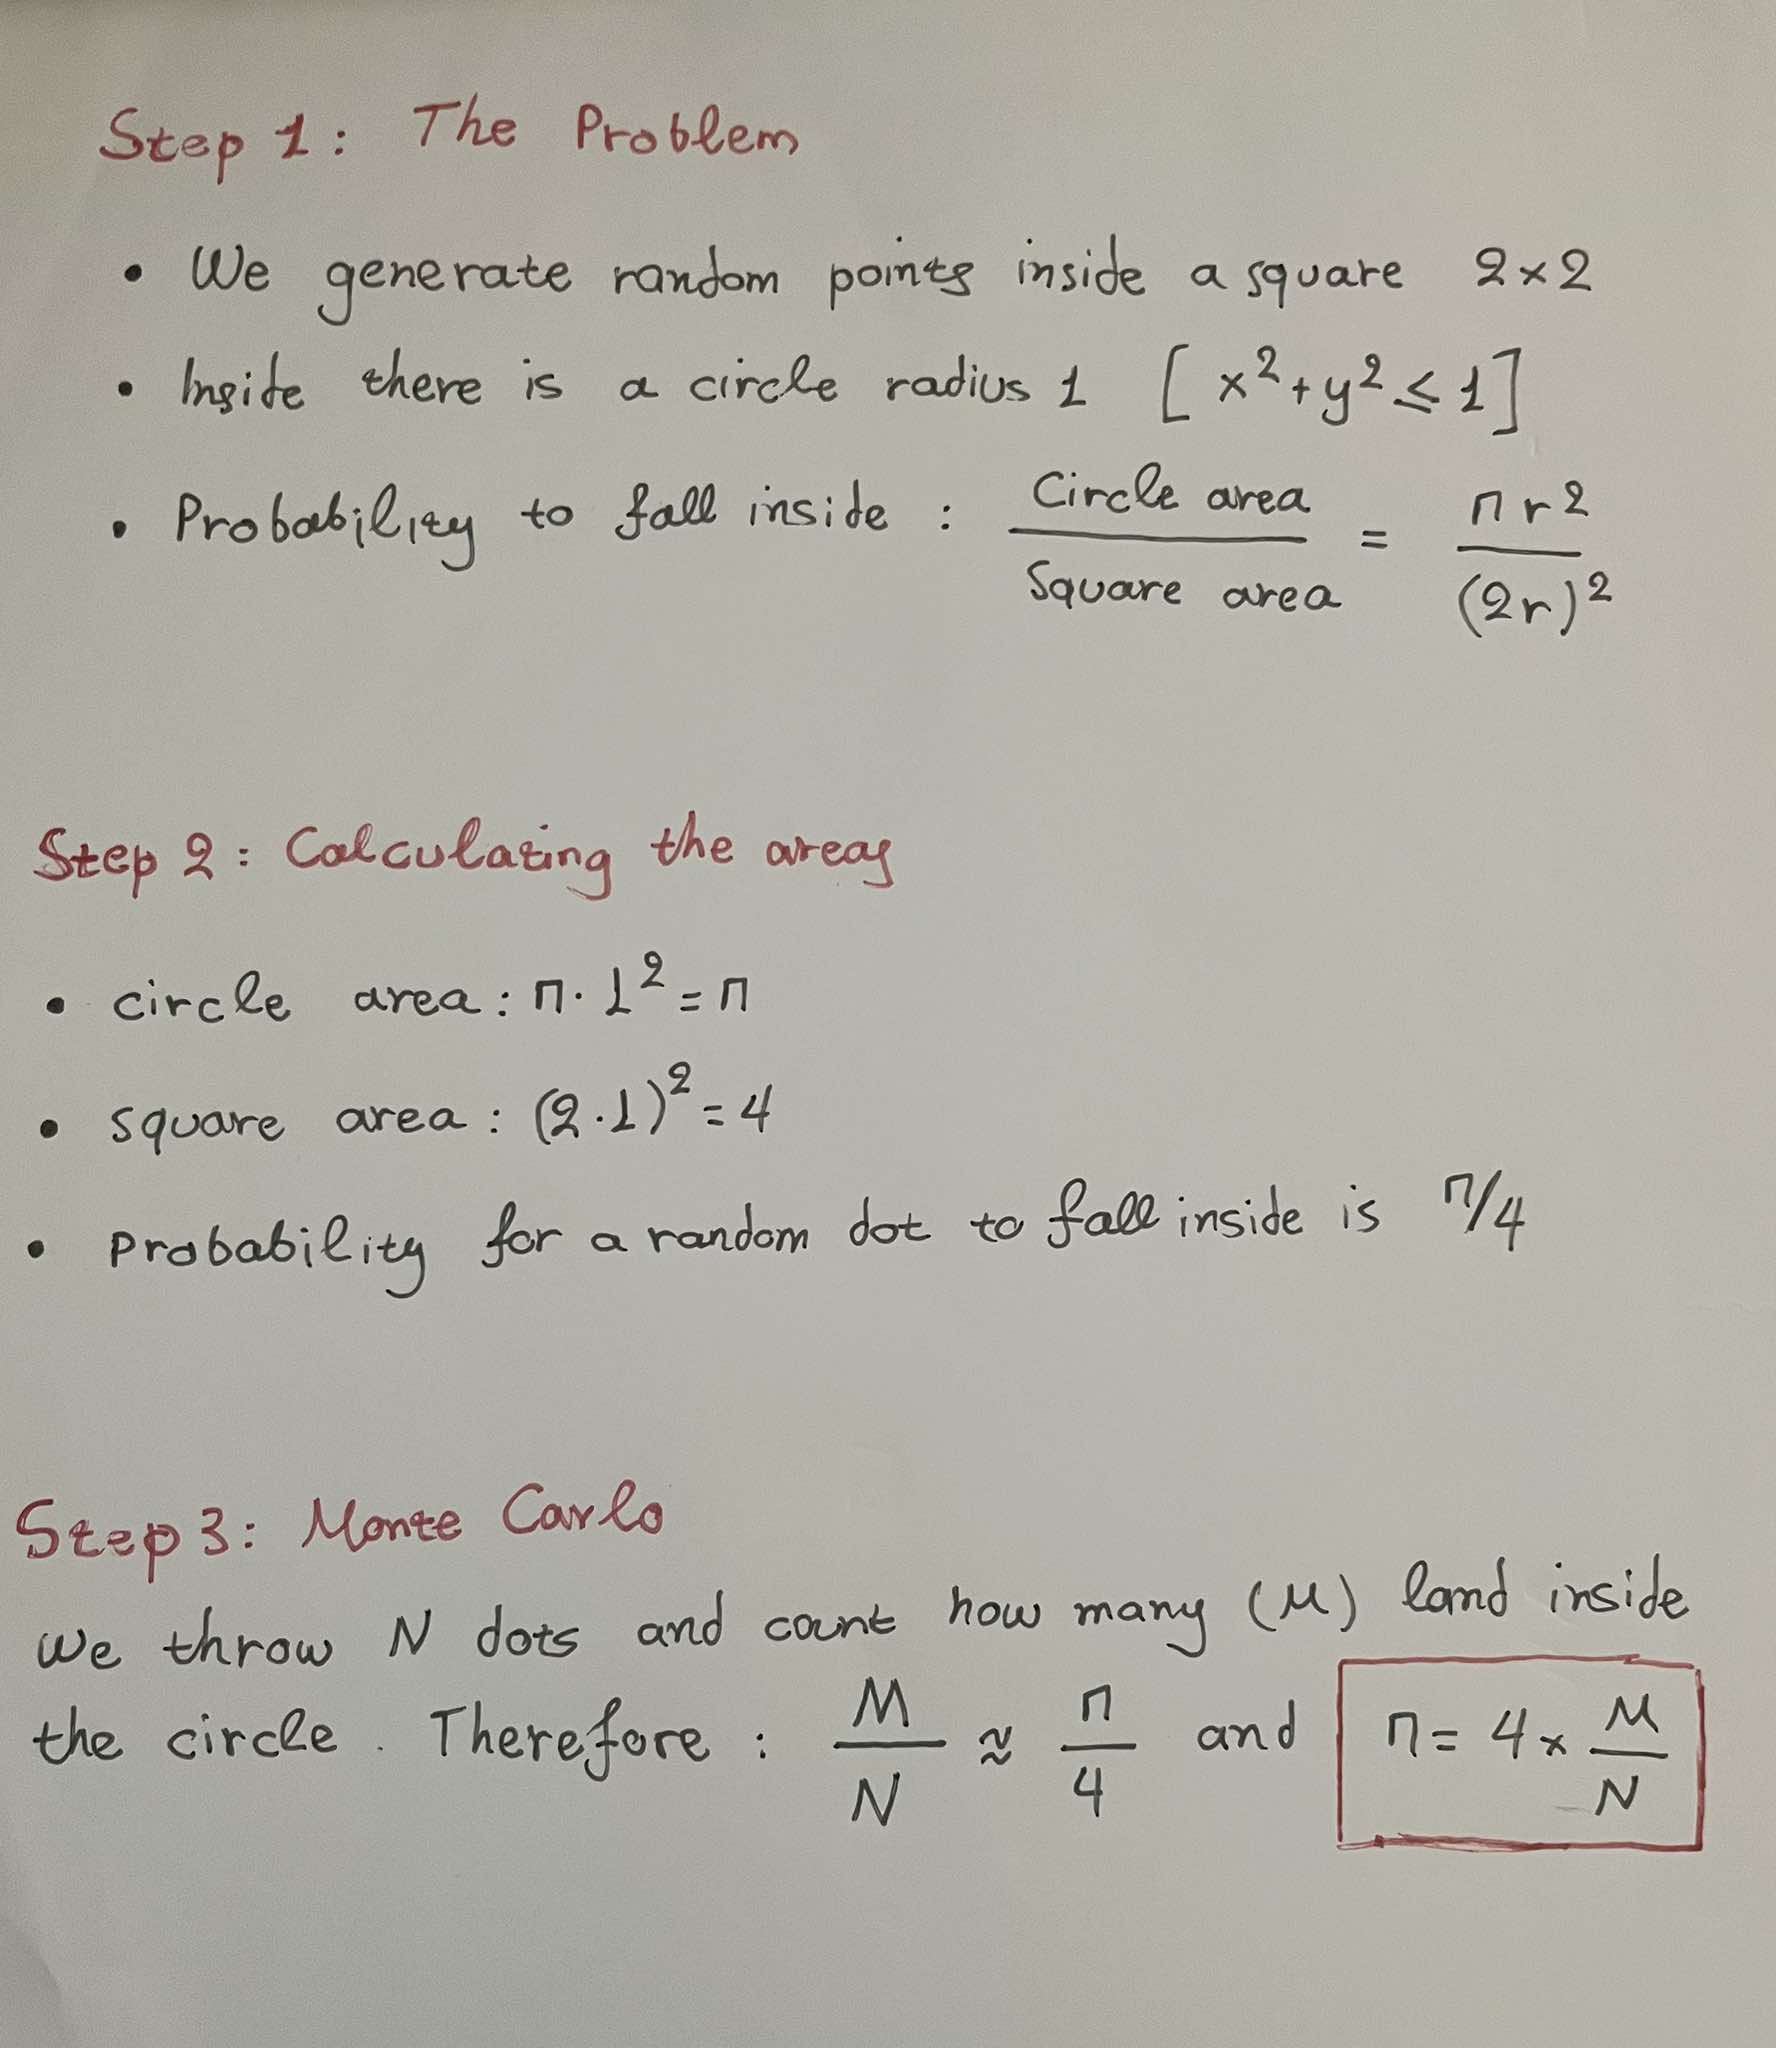 Step 1: The Problem
• We generate random points inside a square 2×2
• Inside there is a circle radius 1 [x²+y²≤1]
• Probability to fall inside : Circle area / Square area = πr² / (2r)²
Step 2: Calculating the areas
• circle area: π·1²=π
• square area: (2·1)²=4
• Probability for a random dot to fall inside is π/4
Step 3: Monte Carlo
We throw N dots and count how many (M) land inside
the circle. Therefore : M/N ≈ π/4 and π = 4 × M/N